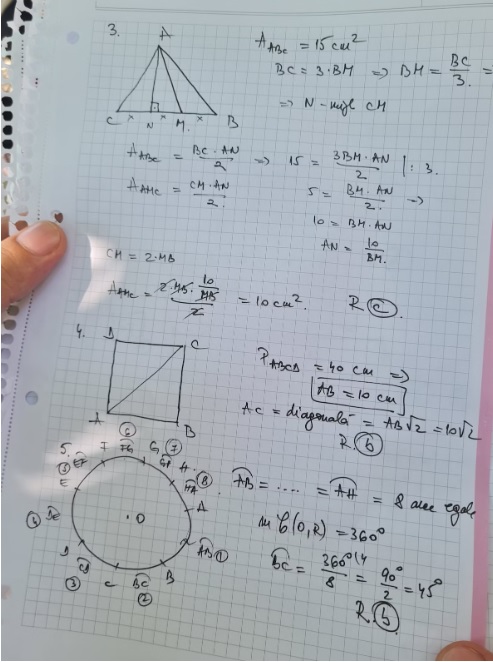 3.
A
A_ABC = 15 cm²
BC = 3·BM => BM = BC/3 =
=> N - mijl CM
C N M B
A_ABC = BC·AN/2 => 15 = 3BM·AN/2 |:3.
A_AMC = CM·AN/2. 5 = BM·AN/2. =>
10 = BM·AN
AN = 10/BM.
CM = 2·MB
A_AMC = 2·MB·10/MB/2 = 10 cm². R(c).
4. D C
A B
P_ABCD = 40 cm =>
AB = 10 cm
AC = diagonală = AB√2 = 10√2
R(b)
5.
F FG G GH H HA A AB B BC C CD D DE E EF
① ② ③ ⑥ ⑦ ⑧
O
AB = ..... = AH = 8 arce egale
m C(O,R) = 360°
BC = 360°/8 = 90°/2 = 45°
R.(b)